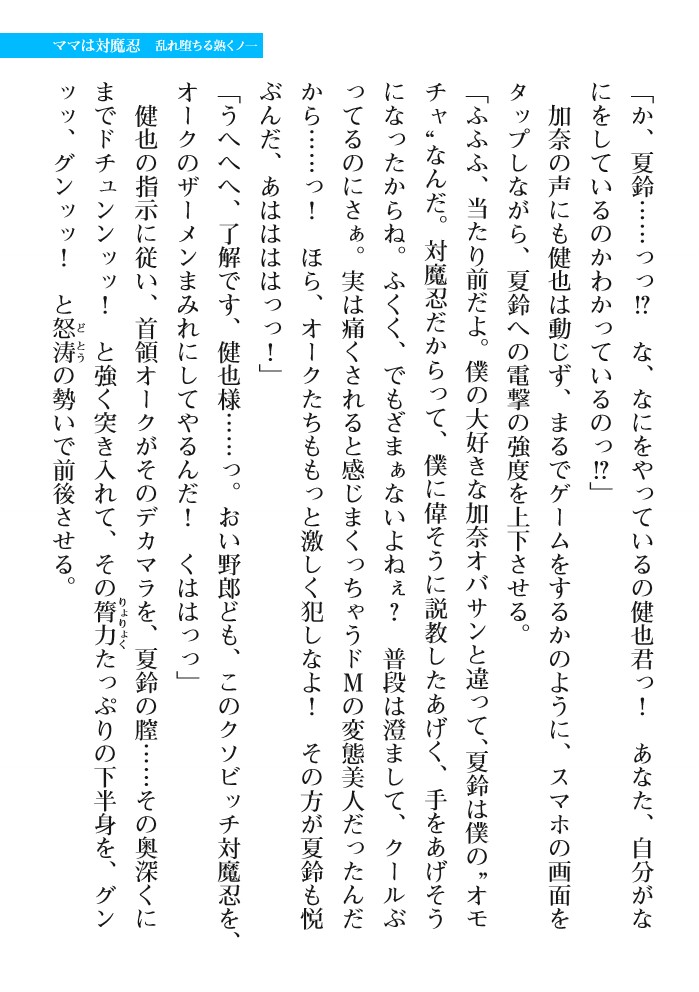 ママは対魔忍　乱れ堕ちる熟くノ一
「か、夏鈴……っっ!?　な、なにをやっているの健也君っ！　あなた、自分がな
にをしているのかわかっているのっ!?」
　加奈の声にも健也は動じず、まるでゲームをするかのように、スマホの画面を
タップしながら、夏鈴への電撃の強度を上下させる。
「ふふふ、当たり前だよ。僕の大好きな加奈オバサンと違って、夏鈴は僕の”オモ
チャ“なんだ。対魔忍だからって、僕に偉そうに説教したあげく、手をあげそう
になったからね。ふくく、でもざまぁないよねぇ？　普段は澄まして、クールぶ
ってるのにさぁ。実は痛くされると感じまくっちゃうドＭの変態美人だったんだ
から……っ！　ほら、オークたちももっと激しく犯しなよ！　その方が夏鈴も悦
ぶんだ、あはははははっっ！」
「うへへへ、了解です、健也様……っ。おい野郎ども、このクソビッチ対魔忍を、
オークのザーメンまみれにしてやるんだ！　くははっっ」
　健也の指示に従い、首領オークがそのデカマラを、夏鈴の膣……その奥深くに
までドチュンンッッ！　と強く突き入れて、その膂力たっぷりの下半身を、グン
ッッ、グンッッ！　と怒涛の勢いで前後させる。